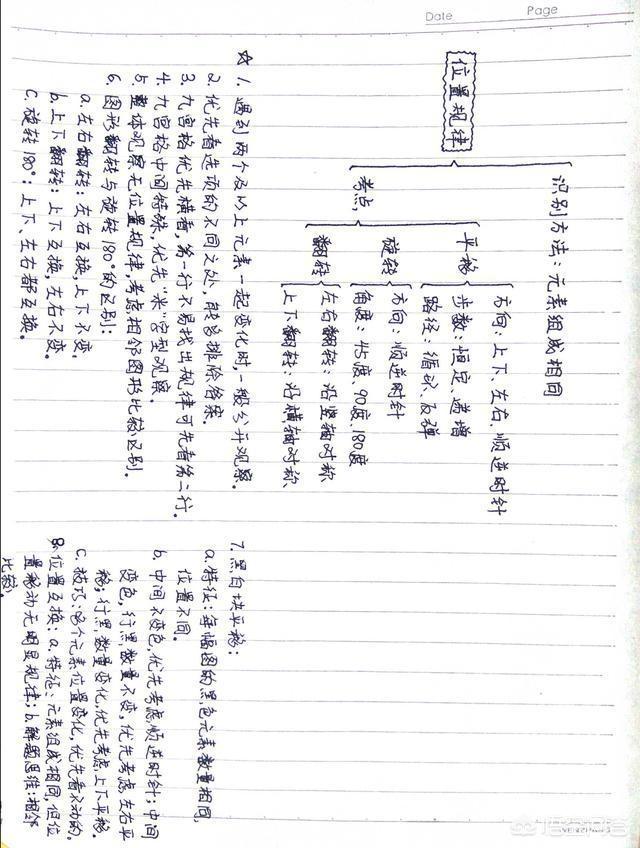 Date
Page
位置规律
识别方法：元素组成相同
考点
平移
方向：上下、左右、顺逆时针
步数：恒定、递增
路径：循环、反弹
旋转
方向：顺逆时针
角度：45度、90度、180度
翻转
左右翻转：沿竖轴对称
上下翻转：沿横轴对称
☆ 1. 遇到两个及以上元素一起变化时，一般分开观察。
2. 优先看选项的不同之处，能够排除答案。
3. 九宫格优先横看，第一行不易找出规律可先看第二行。
4. 九宫格中间特殊，优先“米”字型观察。
5. 整体观察无位置规律，考虑相邻图形比较区别。
6. 图形翻转与旋转180°的区别：
a. 左右翻转：左右互换，上下不变。
b. 上下翻转：上下互换，左右不变。
c. 旋转180°：上下、左右都互换。
7. 黑白块平移：
a. 特征：每幅图的黑色元素数量相同，
位置不同。
b. 中间不变色，优先考虑顺逆时针；中间
变色，行黑数量不变，优先考虑左右平
移；行黑数量变化，优先考虑上下平移。
c. 技巧：多个元素位置变化，优先看不动的。
8. 位置互换：a. 特征：元素组成相同，但位
置移动无明显规律；b. 解题思维：相邻
比较。